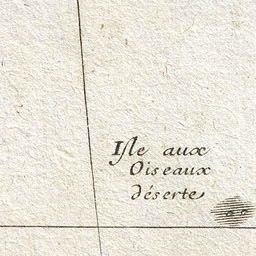 Isle aux
Oiseaux
déserte